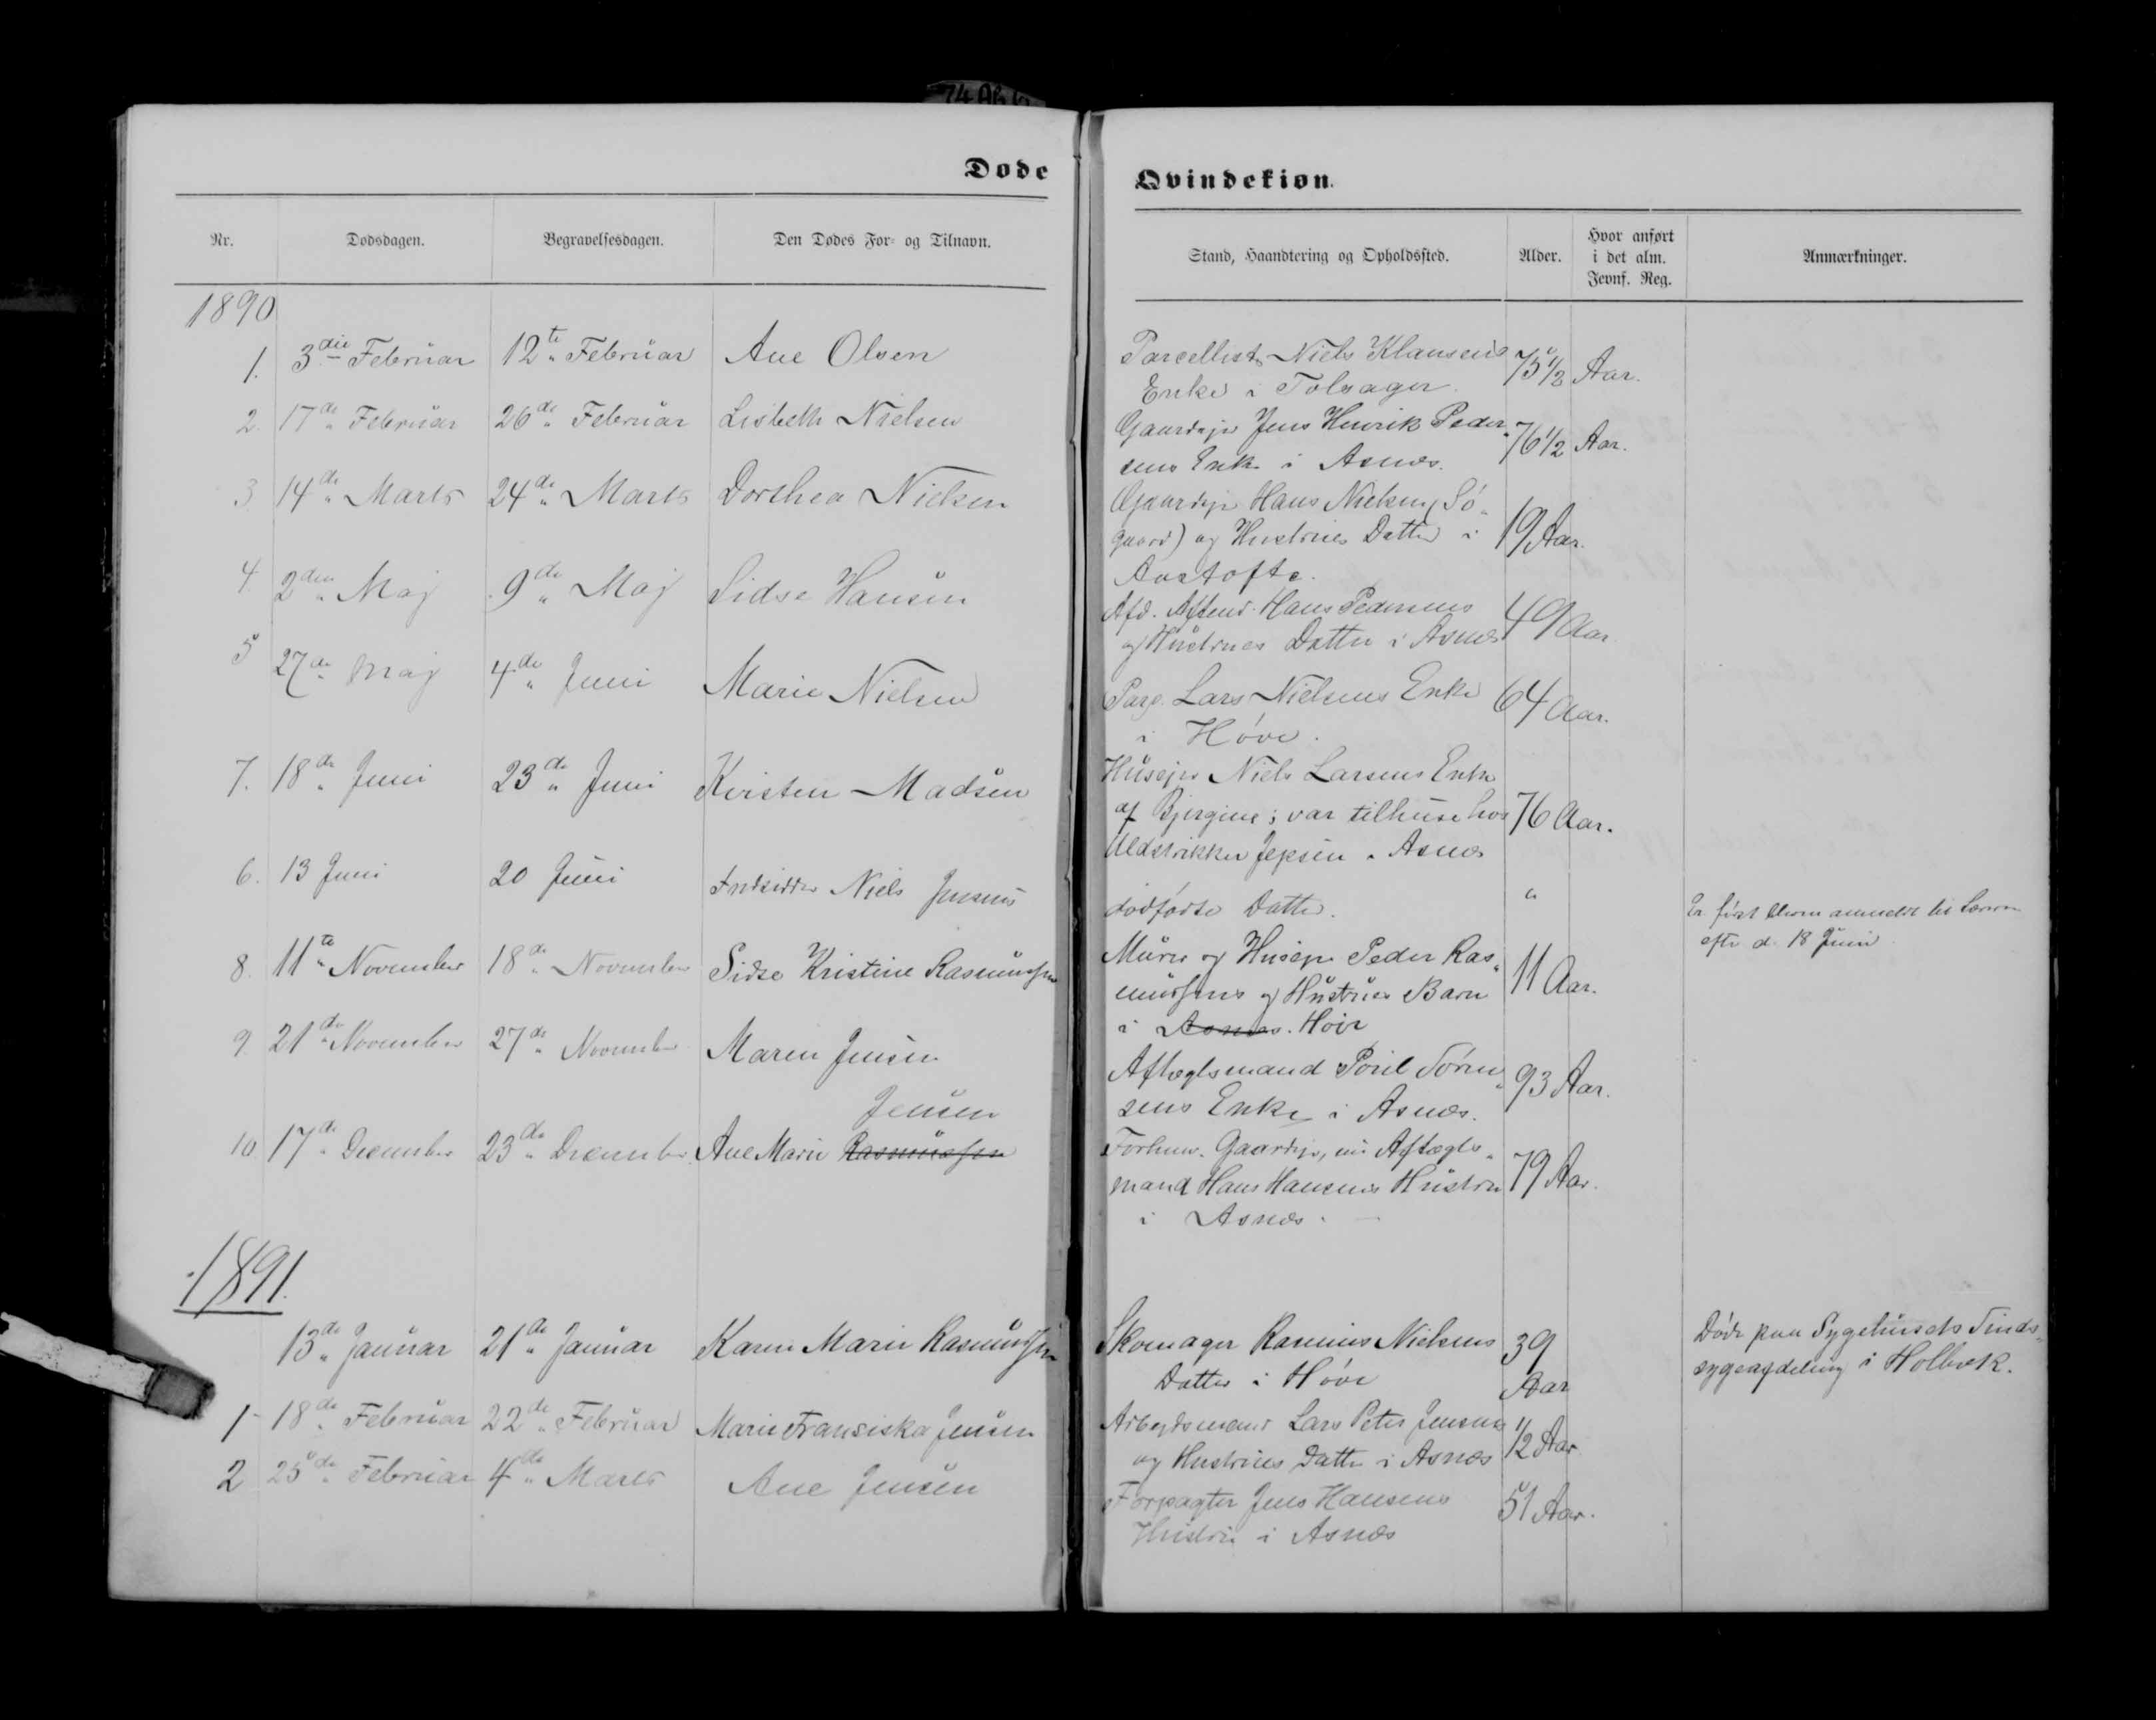 Døde
Qvindekiøn.
Nr.
Dødsdagen.
Begravelsesdagen.
Den Dødes For- og Tilnavn.
Stand, Haandtering og Opholdssted.
Alder.
Hvor anført
i det alm.
Jevnf. Reg.
Anmærkninger.
1890
1. 3die Februar 12te Februar Ane Olsen
Parcellist Niels Klausens 75 1/2 Aar.
Enke i Tolsager.
2. 17de Februar 26de Februar Lisbeth Nielsen
Gaardejr Jens Henrik Peder- 76 1/2 Aar.
sens Enke i Asnæs.
3 14de Marts 24de Marts Dorthea Nielsen
Gaardejr Hans Nielsen (Sø-
gaard) og Hustrues Datter i 19 Aar.
Aastofte.
4. 2den Maj 9de Maj Sidse Hansen
Afd. Aftend. Hans Pedersens 49 Aar
og Hustrues Datter i Asnæs
5 27de Maj 4de Juni Marie Nielsen
Parc. Lars Nielsens Enke 64 Aar.
i Høve.
7. 18de Juni 23de Juni Kirsten Madsen
Husejer Niels Larsens Enke
af Bjergene; var tilhuse hos 76 Aar.
Uldstrikker Jepsen i Asnæs
6. 13 Juni 20 Juni Indsidder Niels Jensens
dødfødte Datter. "
Er først anmeldt til Læreren
efter d. 18 Juni
8. 11te November 18de November Sidse Kristine Rasmussen
Murer og Husejer Peder Ras-
mussens og Hustrues Barn 11 Aar.
i Asnæs. Høve
9. 21de November 27de November Maren Jensen
Aftægtsmand Poul Søren- 93 Aar.
sens Enke i Asnæs.
Jensen
10. 17de December 23de December Ane Marie Rasmussen
Forhenv. Gaardejr, nu Aftægts-
mand Hans Hansens Hustru 79 Aar.
i Asnæs.
1891.
13de Januar 21de Januar Karen Marie Rasmussen
Skomager Rasmus Nielsens 39
Datter i Høve Aar
Døde paa Sygehusets Sinds-
sygeafdeling i Holbæk.
1 18de Februar 22de Februar Marie Fransiska Jensen
Arbejdsmand Lars Peter Jensens 1/2 Aar
og Hustrues Datter i Asnæs
2 25de Februar 4de Marts Ane Jensen
Forpagter Jens Hansens 51 Aar.
Hustru i Asnæs